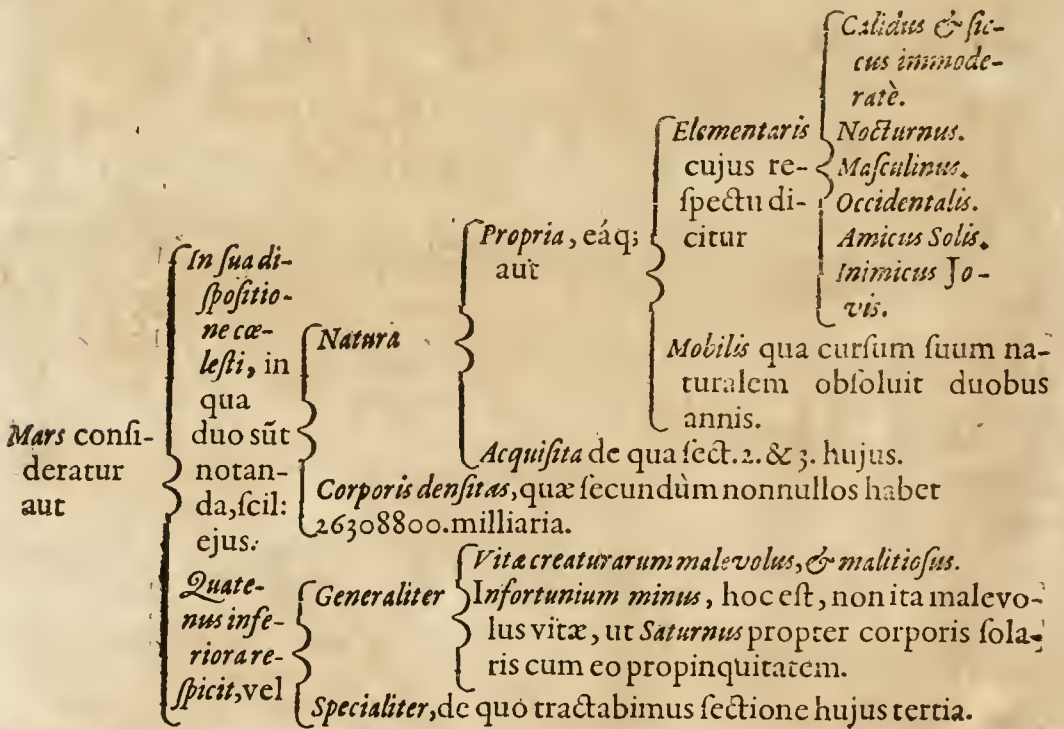 Mars consi-
deratur
aut
In sua di-
spositio-
ne cœ-
lesti, in
qua
duo sũt
notan-
da, scil:
ejus.
Natura
Propria, eáq;
aut
Elementaris
cujus re-
spectu di-
citur
Calidus & sic-
cus immode-
ratè.
Nocturnus.
Masculinus.
Occidentalis.
Amicus Solis.
Inimicus Jo-
vis.
Mobilis qua cursum suum na-
turalem obsoluit duobus
annis.
Acquisita de qua sect. 2. & 3. hujus.
Corporis densitas, quæ secundùm nonnullos habet
26308800. milliaria.
Quate-
nus infe-
riora re-
spicit, vel
Generaliter
Vitæ creaturarum malevolus, & malitiosus.
Infortunium minus, hoc est, non ita malevo-
lus vitæ, ut Saturnus propter corporis sola-
ris cum eo propinquitatem.
Specialiter, de quo tractabimus sectione hujus tertia.